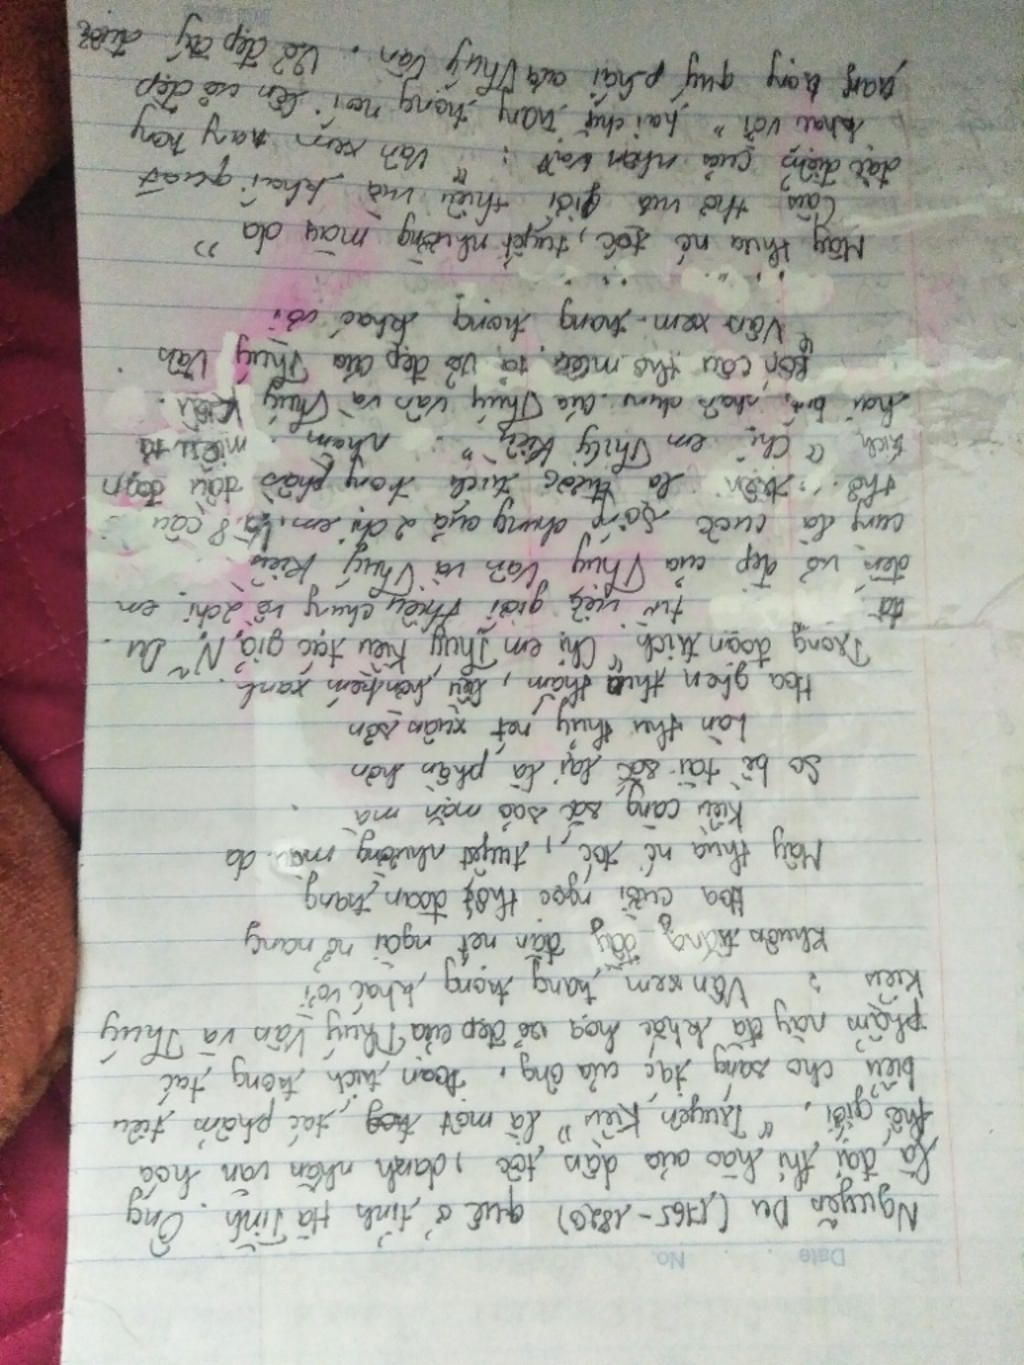 Date No.
Nguyễn Du (1765-1820) quê ở tỉnh Hà Tĩnh. Ông
là đại thi hào của dân tộc, danh nhân văn hóa
thế giới. "Truyện Kiều" là một tác phẩm tiêu
biểu cho sáng tác của ông. Đoạn trích trong tác
phẩm này đã khắc họa vẻ đẹp của Thuý Vân và Thuý
Kiều :
Vân xem trang trọng khác vời
Khuôn trăng đầy đặn nét ngài nở nang
Hoa cười ngọc thốt đoan trang
Mây thua nước tóc, tuyết nhường màu da
Kiều càng sắc sảo mặn mà
So bề tài sắc lại là phần hơn
Làn thu thủy nét xuân sơn
Hoa ghen thua thắm, liễu hờn kém xanh.
Trong đoạn trích "Chị em Thuý Kiều tác giả Ng~ Du
đã từ việc giới thiệu chung về 2 chị em
đến vẻ đẹp của Thuý Vân và Thuý Kiều
cùng là cuộc sống chung của 2 chị em. 8 câu
thơ trên là được trích trong phần đầu đoạn
trích "Chị em Thuý Kiều" nhằm miêu tả
hai bức chân dung của Thuý Vân và Thuý Kiều.
Bốn câu thơ miêu tả vẻ đẹp của Thuý Vân
"Vân xem trang trọng khác vời
.........
Mây thua nước tóc, tuyết nhường màu da"
Câu thơ mở giới thiệu và khái quát
đặc điểm của nhân vật : "Vân xem trang trọng
khác vời" hai chữ trang trọng nói lên vẻ đẹp
sang trọng quý phái của Thuý Vân. Vẻ đẹp ấy được